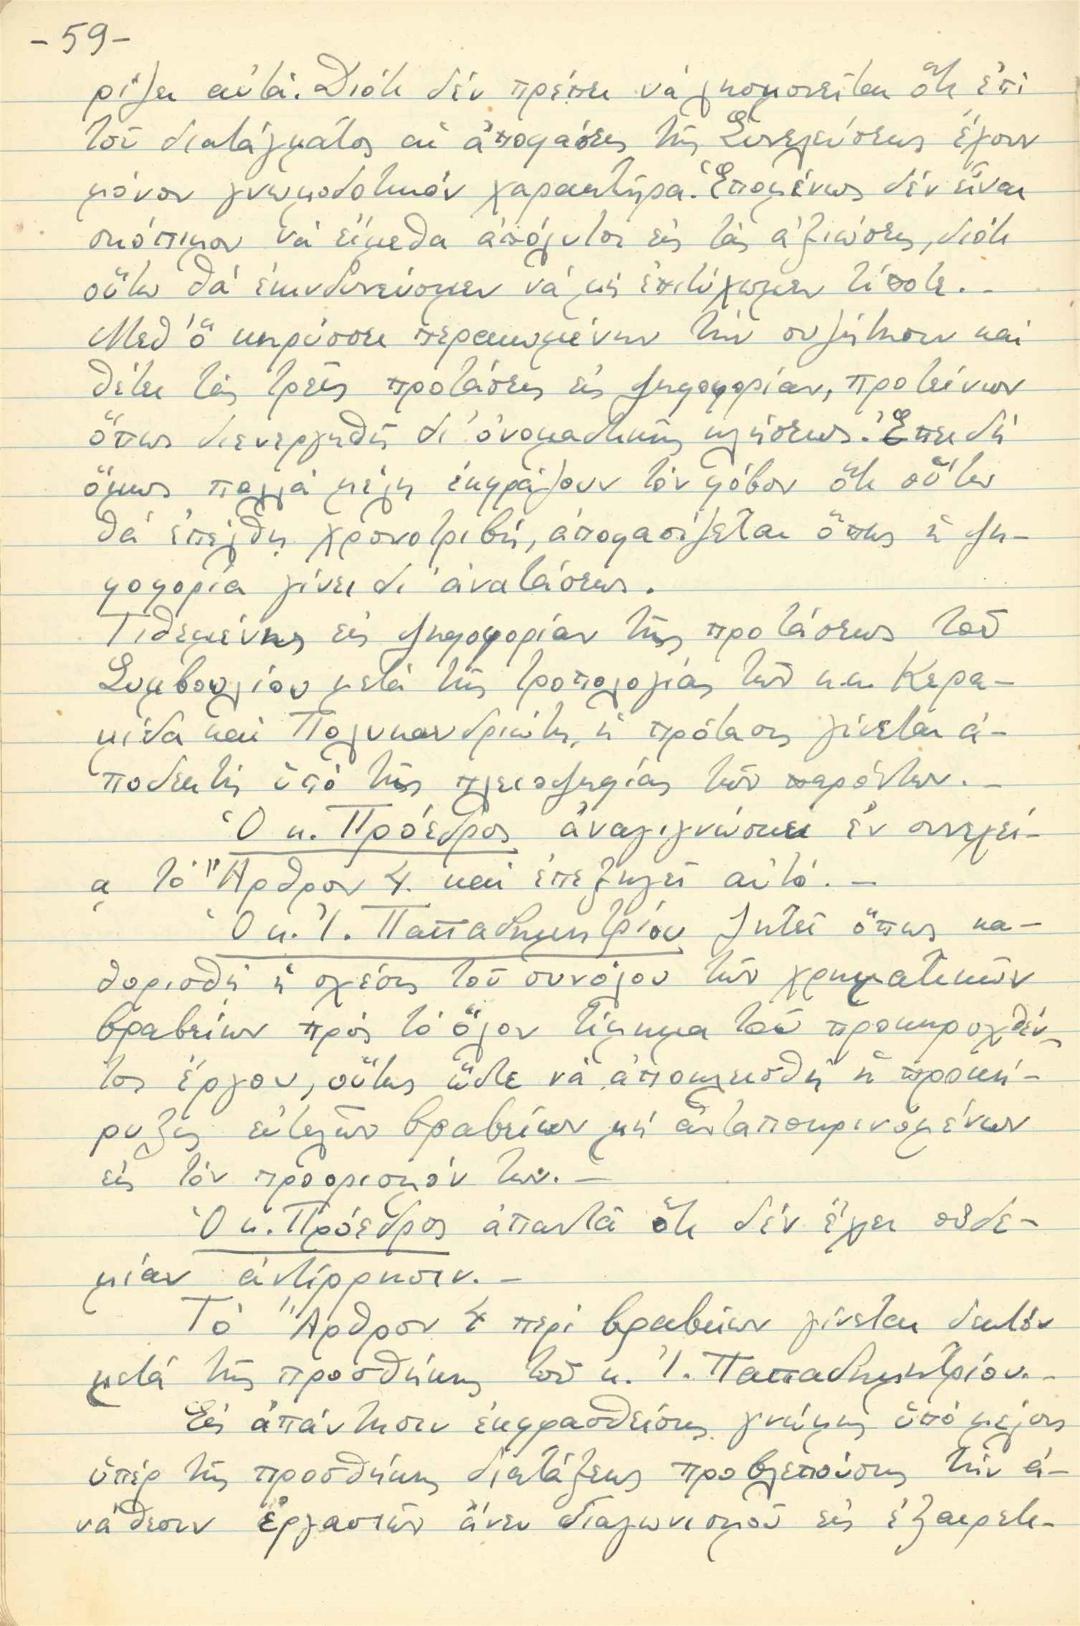 -59-
ρίζει αὐτά. Διότι δέν πρέπει νά λησμονεῖται ὅτι ἐπί
τοῦ διατάγματος αἱ ἀποφάσεις τῆς Συνελεύσεως ἔχουν
μόνον γνωμοδοτικόν χαρακτῆρα. Ἑπομένως δέν εἶναι
σκόπιμον νά εἴμεθα ἀπόλυτοι εἰς τάς ἀξιώσεις, διότι
οὕτω θά ἐκινδυνεύσμεν νά μή ἐπιτύχωμεν τίποτε.-
Μεθ' ὅ κηρύσσει περαιωμένην τήν συζήτησιν καί
θέτει τάς τρεῖς προτάσεις εἰς ψηφοφορίαν, προτείνων
ὅπως διενεργηθῇ δι' ὀνομαστικῆς κλήσεως. Ἐπειδή
ὅμως πολλά μέλη ἐκφράζουν τόν φόβον ὅτι οὕτω
θά ἐπέλθῃ χρονοτριβή, ἀποφασίζεται ὅπως ἡ ψη-
φοφορία γίνει δι' ἀνατάσεως.
Τιθεμένης εἰς ψηφοφορίαν τῆς προτάσεως τοῦ
Συμβουλίου μετά τῆς τροπολογίας τῶν κ.κ. Κερα-
μίδα καί Πολυκανδριώτη, ἡ πρότασις γίνεται ἀ-
ποδεκτή ὑπό τῆς πλειοψηφίας τῶν παρόντων.-
Ὁ κ. Πρόεδρος ἀναγιγνώσκει ἐν συνεχεί-
ᾳ τό Ἄρθρον 4. καί ἐπεξηγεῖ αὐτό.-
Ὁ κ. Ἰ. Παπαδημητρίου ζητεῖ ὅπως κα-
θορισθῇ ἡ σχέσις τοῦ συνόλου τῶν χρηματικῶν
βραβείων πρός τό ὅλον τίμημα τοῦ προκηρυχθέν
τος ἔργου, οὕτως ὥστε νά ἀποκλεισθῇ ἡ προκή-
ρυξις εὐτελῶν βραβείων μή ἀνταποκρινομένων
εἰς τόν προορισμόν των.-
Ὁ κ. Πρόεδρος ἀπαντᾶ ὅτι δέν ἔχει οὐδε-
μίαν ἀντίρρησιν.-
Τό Ἄρθρον 4 περί βραβείων γίνεται δεκτόν
μετά τῆς προσθήκης τοῦ κ. Ἰ. Παπαδημητρίου.-
Εἰς ἀπάντησιν ἐκφρασθείσης γνώμης ὑπό μέλους
ὑπέρ τῆς προσθήκης διατάξεως προβλεπούσης τήν ἀ-
νάθεσιν ἐργασιῶν ἄνευ διαγωνισμοῦ εἰς ἐξαιρετι-